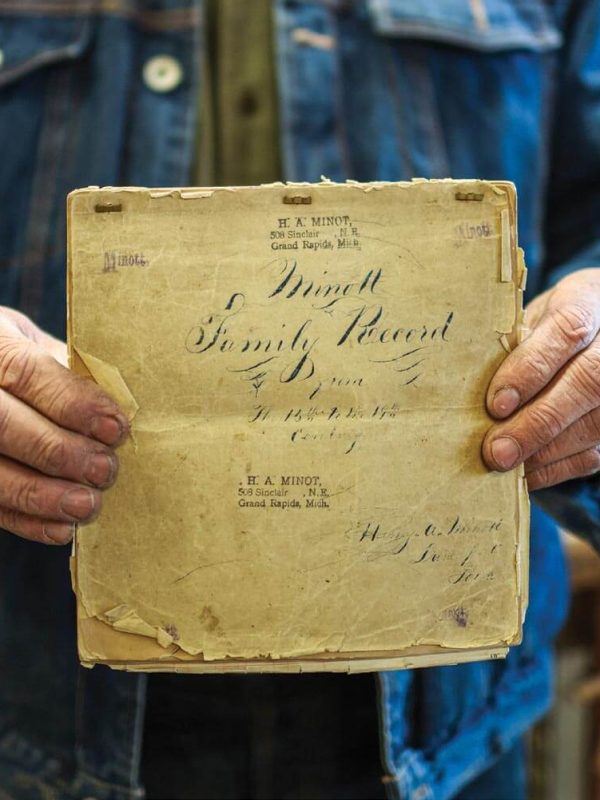 H. A. MINOT,
508 Sinclair , N.E.
Grand Rapids, Mich.
Minott
Minott
Minott
Family Record
From
The 15th to the 19th
Century
H. A. MINOT,
508 Sinclair , N.E.
Grand Rapids, Mich.
A. Minott